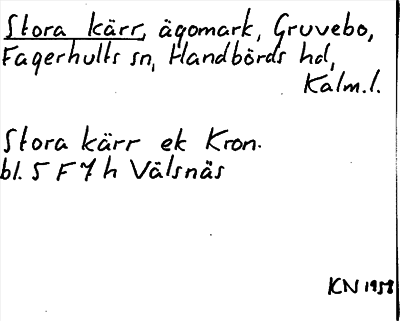 Stora kärr, ägomark, Gruvebo,
Fagerhults sn, Handbörds hd,
Kalm.l.
Stora kärr ek Kron.
bl. 5 F 7 h Välsnäs
KN 1958